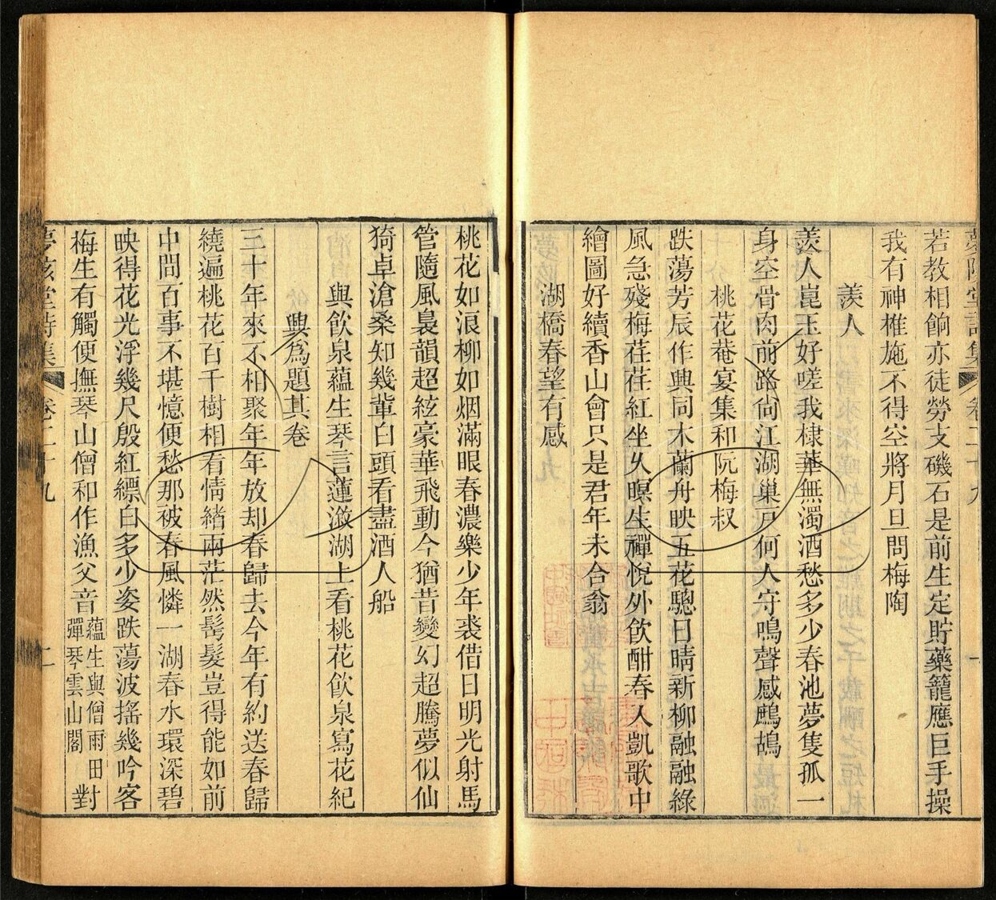 若教相餉亦徒勞支磯石是前生定貯藥籠應巨手操
我有神椎施不得空將月旦問梅陶
羨人
羨人崑玉好嗟我棣華無濁酒愁多少春池夢隻孤一
身空骨肉前路尙江湖巢戸何人守鳴聲感鷓鴣
桃花菴宴集和阮梅叔
跌蕩芳辰作興同木蘭舟映五花驄日晴新柳融融綠
風急殘梅荏荏紅坐久暝生禪悅外飲酣春入凱歌中
繪圖好續香山會只是君年未合翁
湖橋春望有感
桃花如浪柳如烟滿眼春濃樂少年裘借日明光射馬
管隨風裊韻超絃豪華飛動今猶昔變幻超騰夢似仙
猗卓滄桑知幾輩白頭看盡酒人船
與飲泉蘊生琴言蓮漵湖上看桃花飲泉寫花紀
興爲題其卷
三十年來不相聚年年放却春歸去今年有約送春歸
繞遍桃花百千樹相看情緒兩茫然髩髮豈得能如前
中間百事不堪憶便愁那被春風憐一湖春水環深碧
映得花光浮幾尺殷紅縹白多少姿跌蕩波搖幾吟客
梅生有觸便撫琴山僧和作漁父音蘊生與僧雨田對
彈琴雲山閣
夢陔堂詩集 卷二十九 二